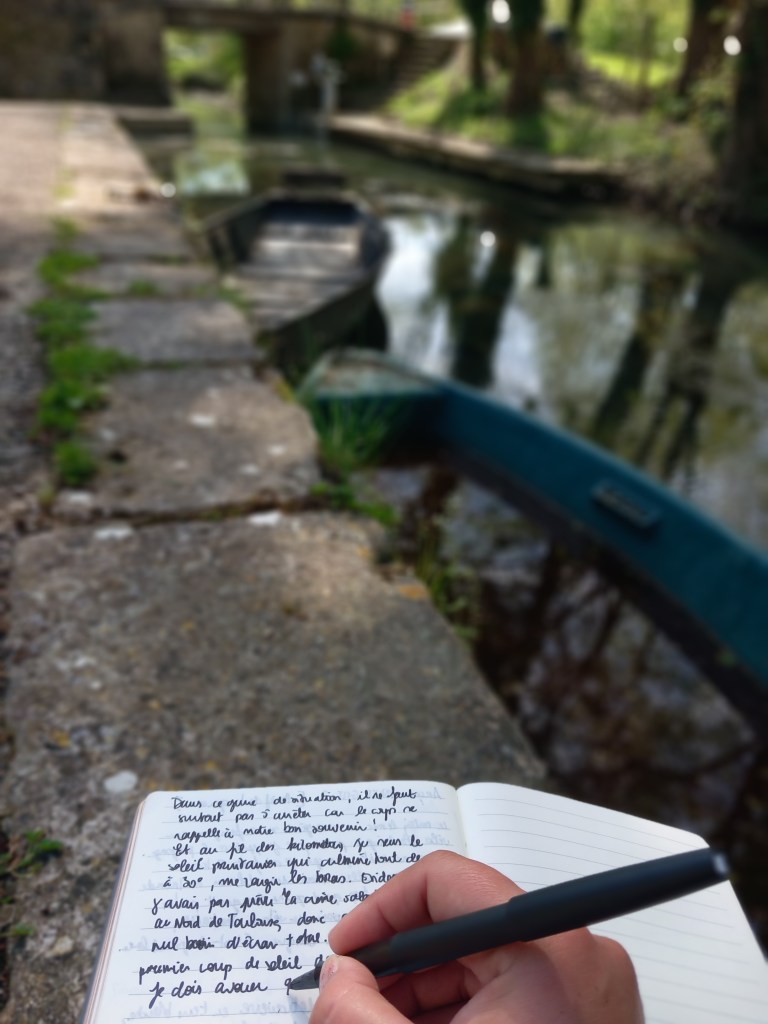 Dans ce genre de situation, il ne faut
surtout pas s'arrêter car le corps se
rappelle à notre bon souvenir !
Et au fil des kilomètres je sens le
soleil printanier qui culmine tout de
à 30°, me rougir les bras.
j'avais pas prévu la crème
au Nord de Toulouse, donc
nul besoin d'écran +
premier coup de soleil
Je dois avouer q